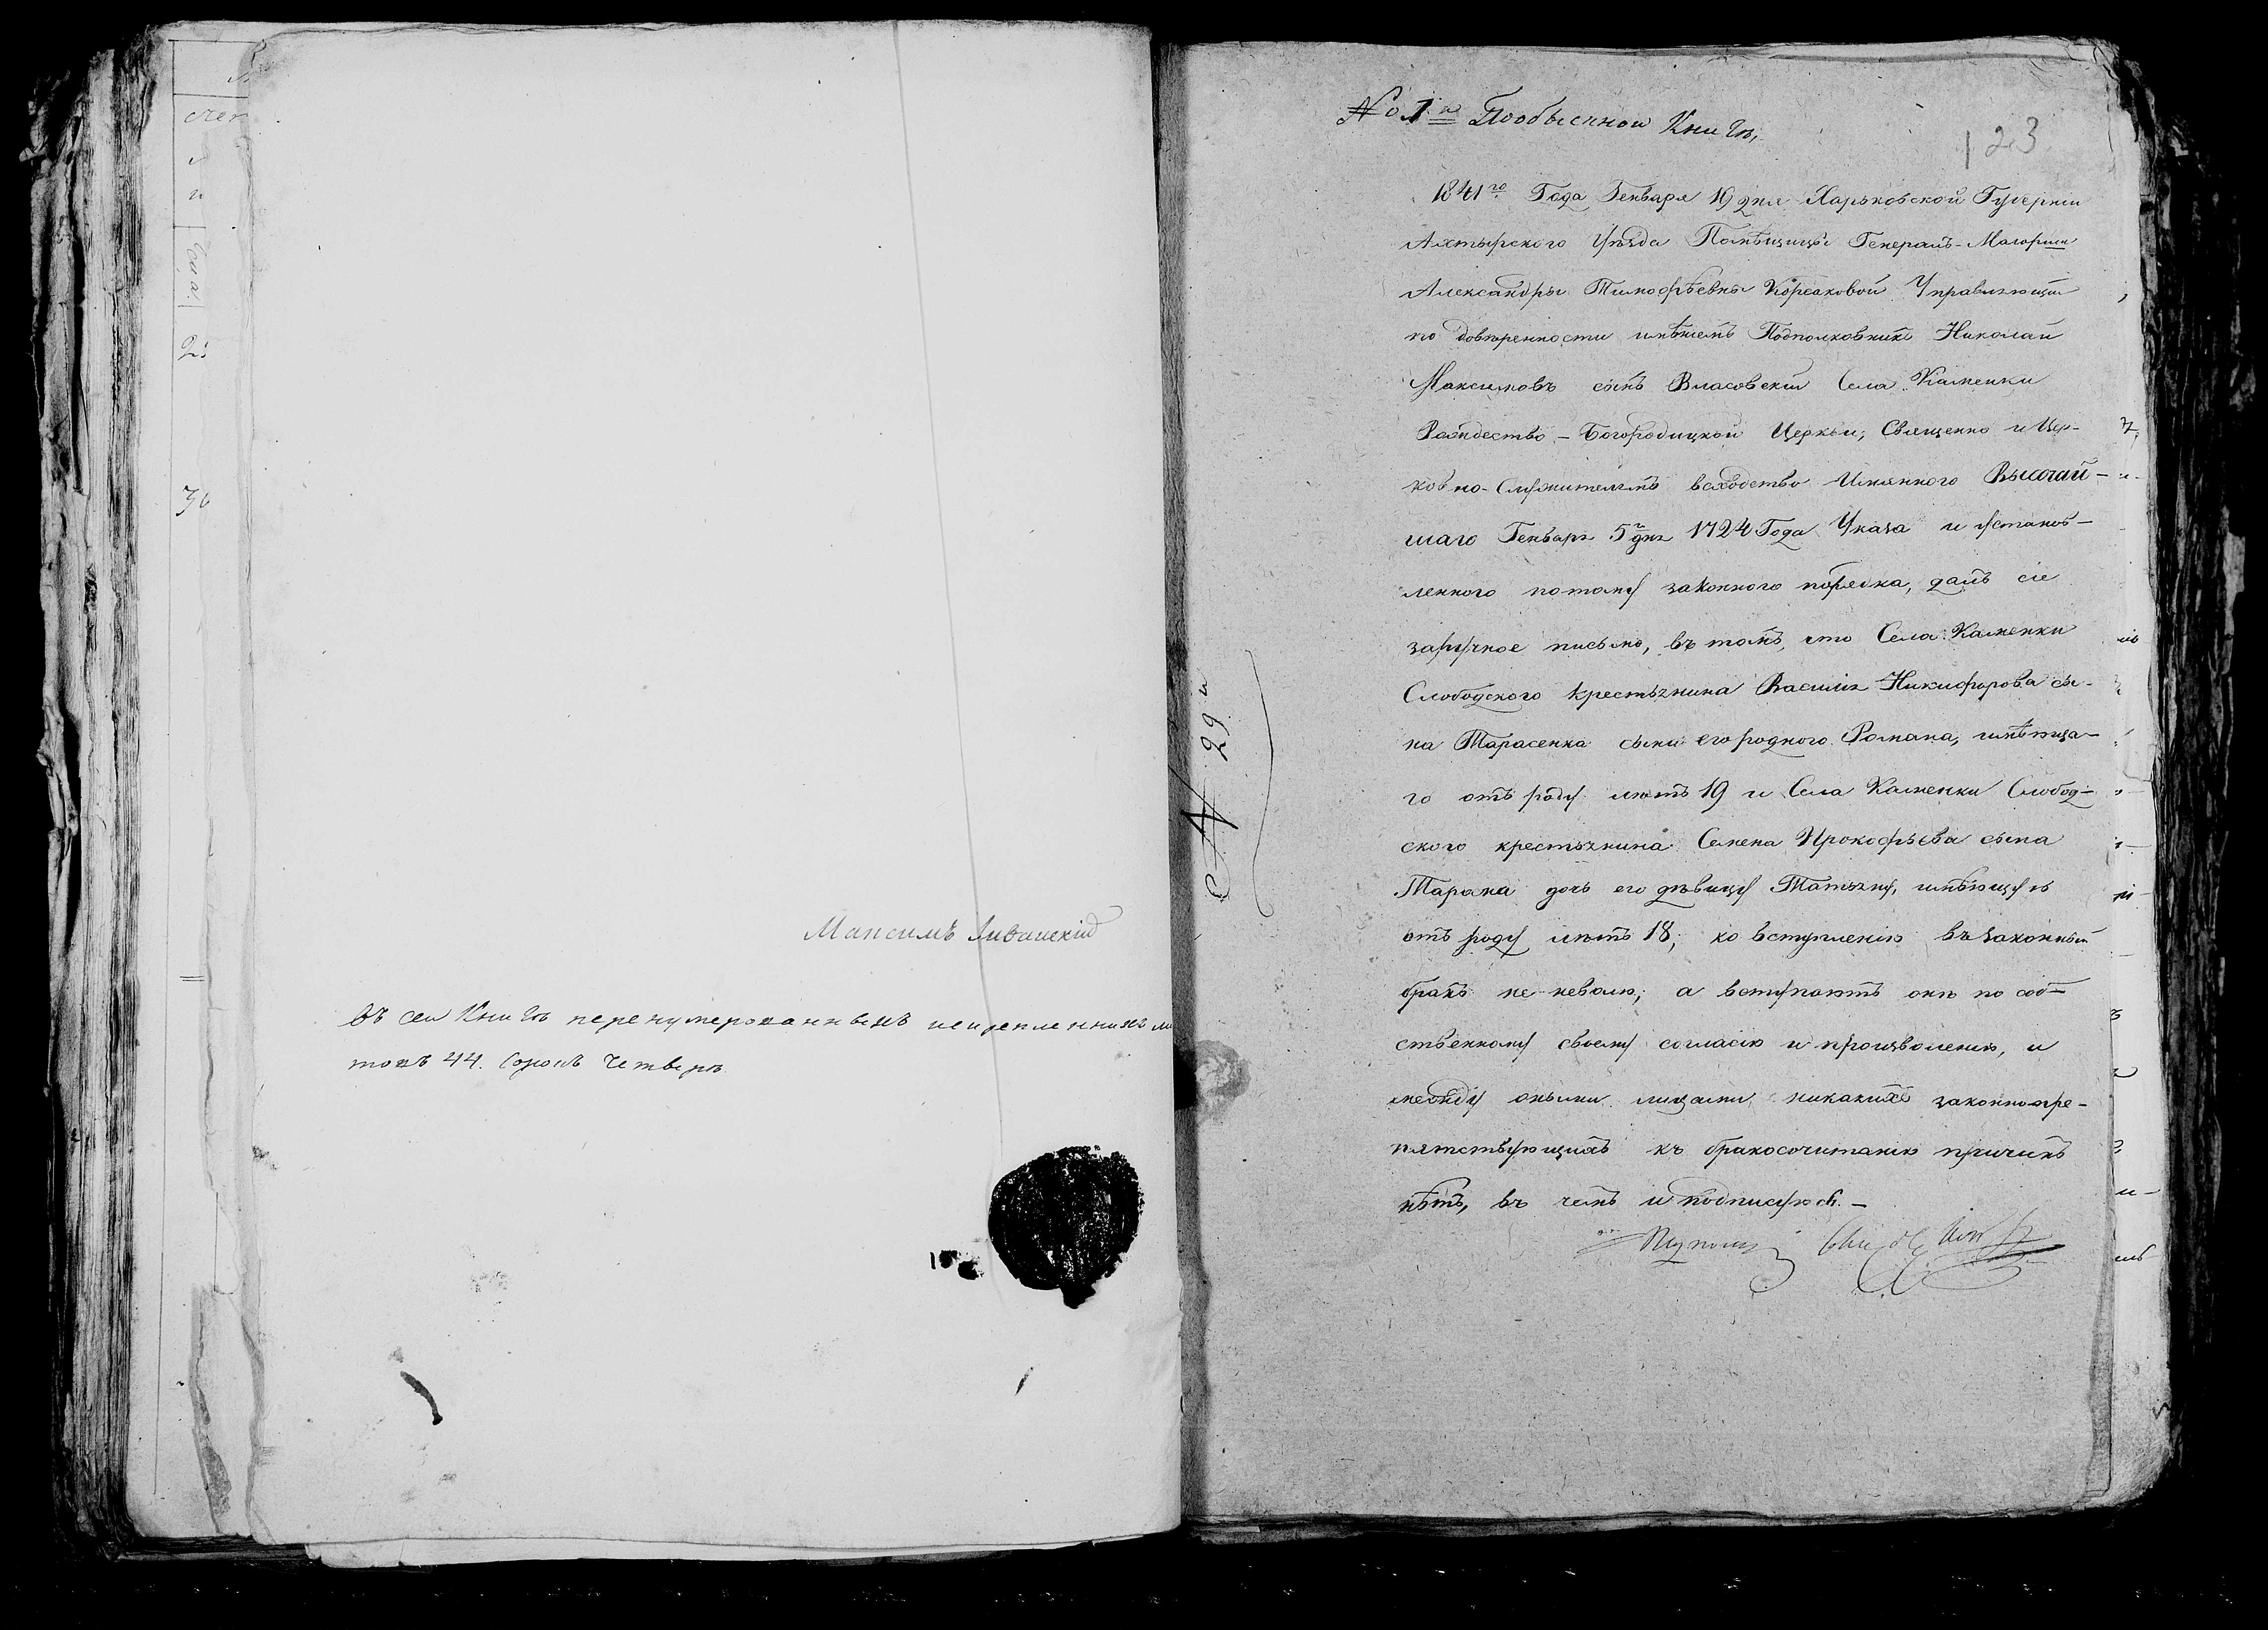 Максимъ
въ сей Книгѣ перенумерованныхъ искрепленныхъ ли
товъ 44. Сорокъ Четверо
№ 29й
№ 1й Пообыскной Книгѣ,
123
1841го Года Генваря 19 дня Харьковской Губерніи
Ахтырскаго Уѣзда Помѣщицы Генералъ-Маіорши
Александры Тимофѣевны Корсаковой Управляющій
по довѣренности имѣніемъ Подполковникъ Николай
Максимовъ сынъ Власовскій Села Каменки
Рождество-Богородицкой Церкви, Священно и Цер-
ковно-Служителямъ всходство Имяннаго Высочай-
шаго Генваря 5го дня 1724 Года Указа и установ-
леннаго потому законнаго порядка, далъ сіе
заручное письмо, въ томъ, что Села Каменки
Слободского крестьянина Василія Никифорова сы-
на Тарасенка сына его родного Романа, имѣюща-
го отъ роду лѣтъ 19 и Села Каменки Слобод-
ского крестьянина Семена Прокофьева сына
Тарана дочь его дѣвицу Татьяну, имѣющую
отъ роду лѣтъ 18, ко вступленію въ законный
бракъ не неволю; а вступаютъ онѣ по соб-
ственному своему согласію и произволенію, и
между оными лицами никакихъ законнопре-
пятствующихъ къ бракосочитанію причинъ
нѣтъ, въ чемъ и подписуюсь.-